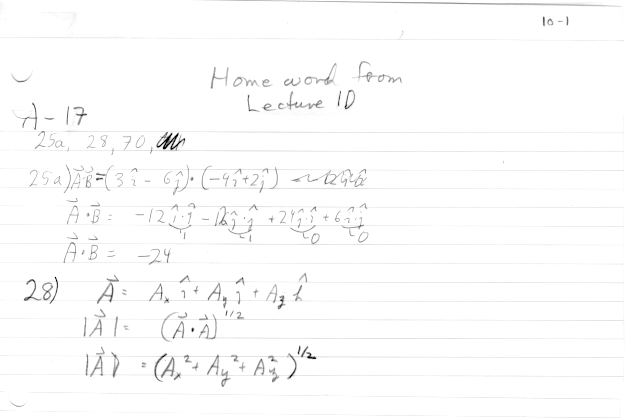 10-1
Home word from
Lecture 1D
A-17
25a, 28, 70,
25a) A⃗·B⃗=(3î - 6ĵ)·(-4î+2ĵ)
A⃗·B⃗ = -12 î·î - 12 ĵ·ĵ + 24 ĵ·î + 6 î·ĵ
1 1 0 0
A⃗·B⃗ = -24
28) A⃗ = Aₓ î + A_y ĵ + A_z k̂
|A⃗| = (A⃗·A⃗)^1/2
|A⃗| = (Aₓ² + A_y² + A_z²)^1/2